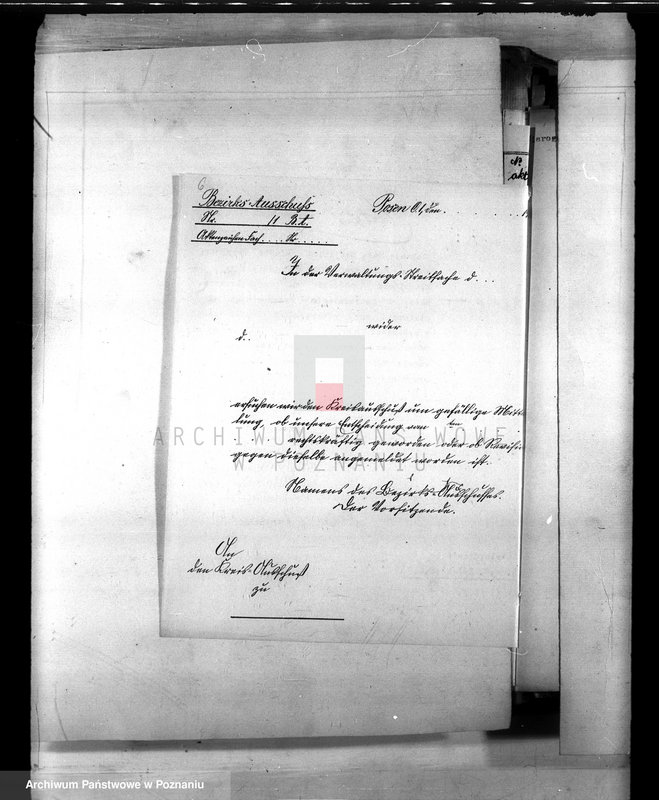 6
Bezirks-Ausschuß
Nr. /1 B.A.
Aktenzeichen Fach.... Nr......
Posen O.1, den
In der Verwaltungs-Streitsache d...
wider
d..
ersuchen wir den Kreisausschuß um gefällige Mittei
lung, ob unsere Entscheidung vom ten
rechtskräftig geworden oder ob Revision
gegen dieselbe angemeldet worden ist.
Namens des Bezirks-Ausschusses.
Der Vorsitzende.
An
den Kreis-Ausschuß
zu
№
akt
ARCHIWUM PAŃSTWOWE
W POZNANIU
Archiwum Państwowe w Poznaniu